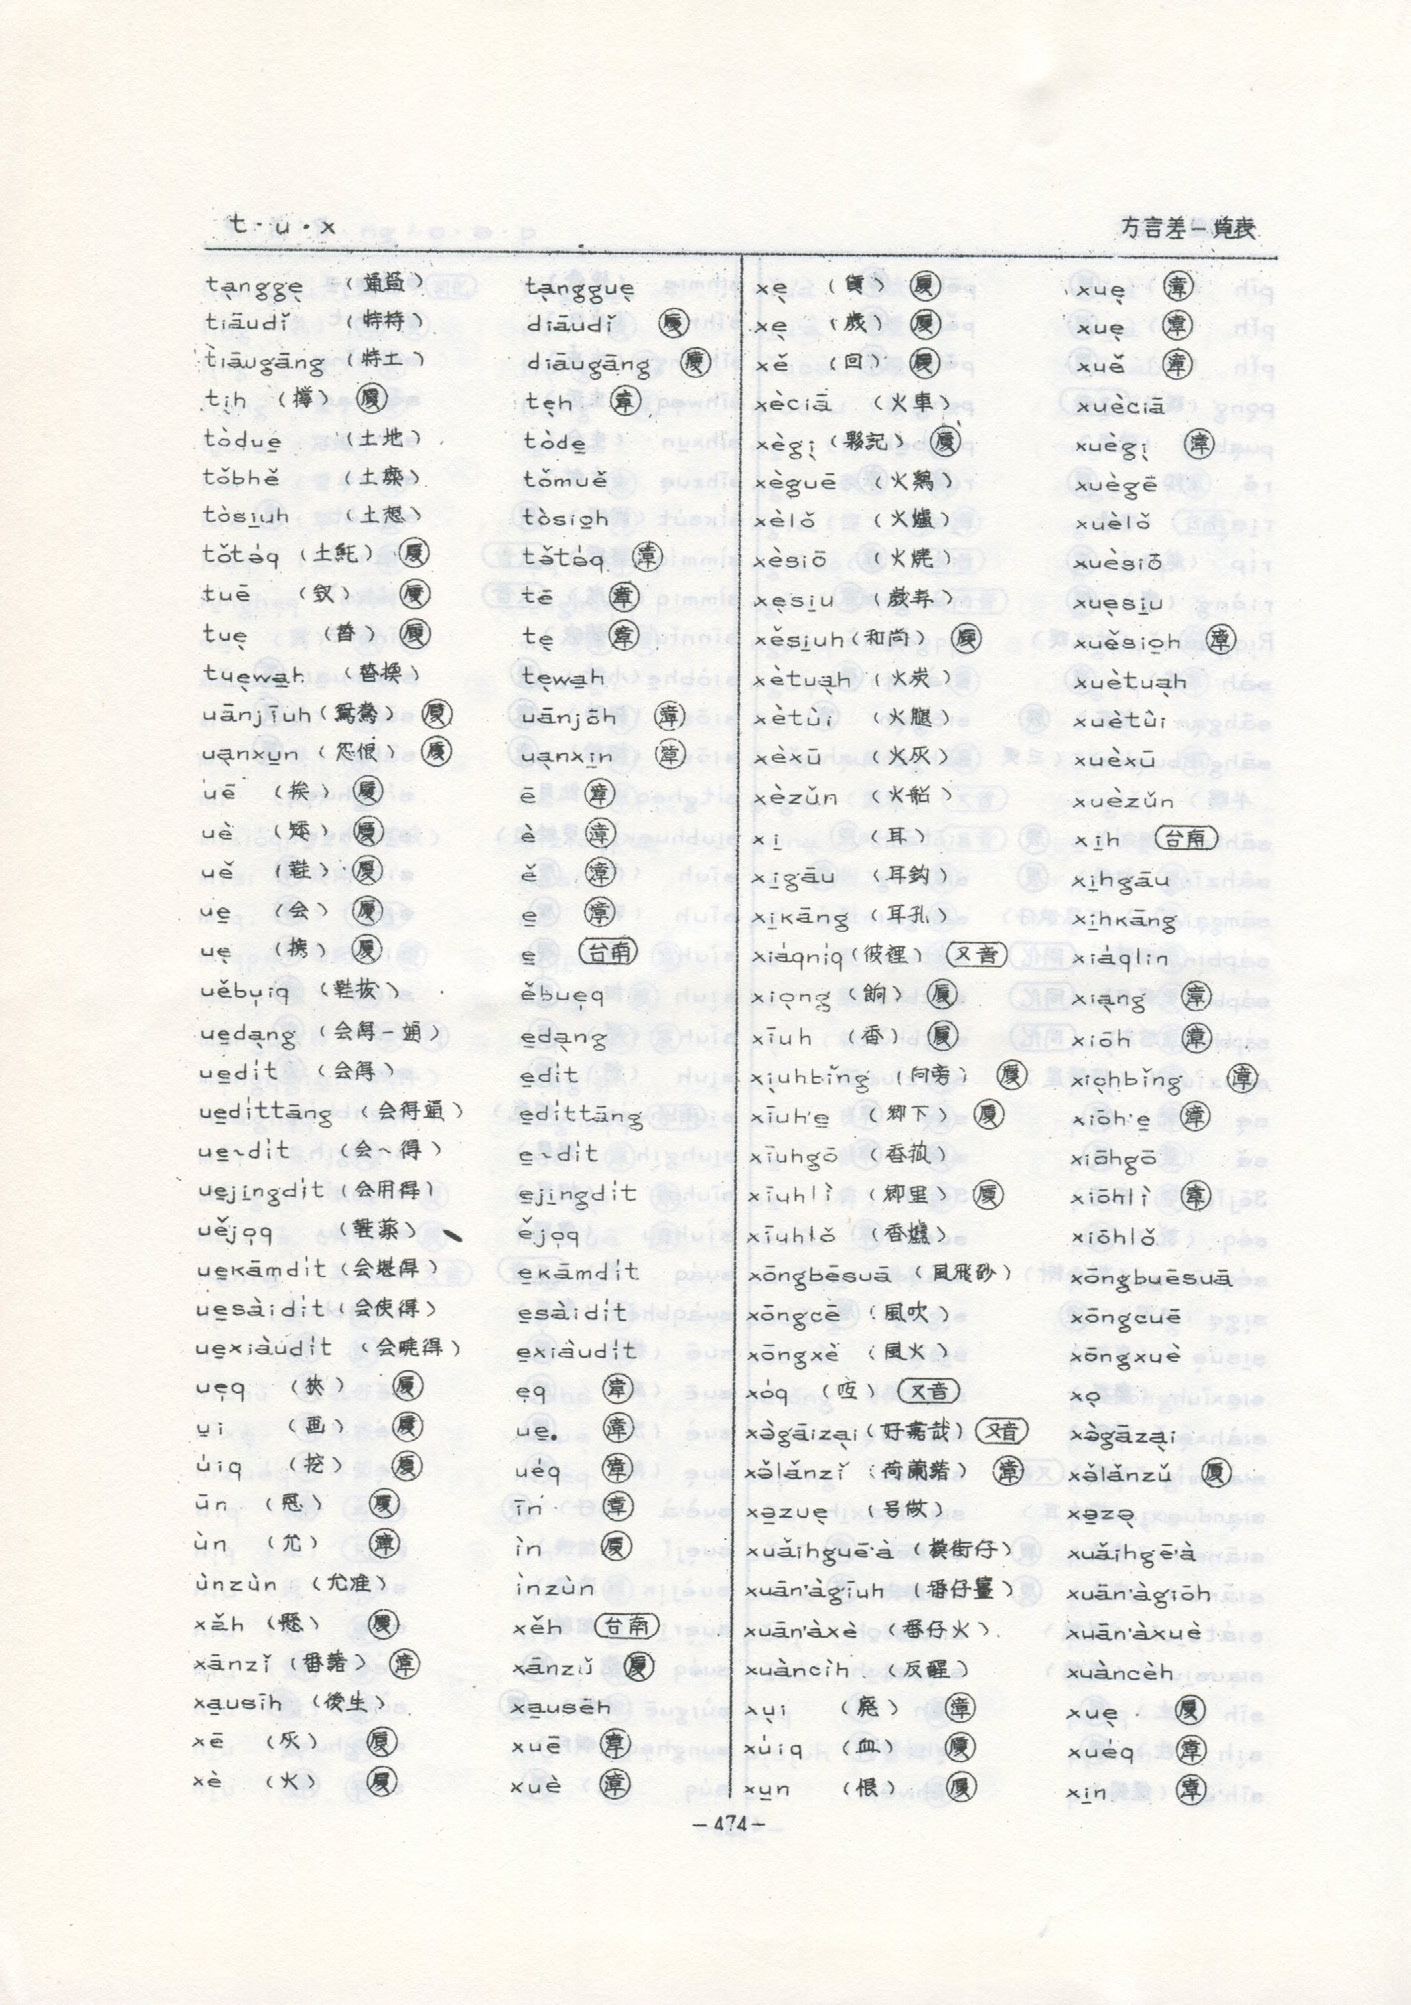 t·u·x 方言差一覧表
tạnggẹ (通過) tạngguẹ
tiāudǐ (特持) diāudǐ 厦
tiāugāng (特土) diāugāng 厦
tị̄h (擤) 厦 tẹh 漳
tòdu̱e (土地) tòde̱
tǒbhě tǒmuě
tòsi̱uh (土想) tòsio̱h
tǒta̍q (土魠) 厦 tə̌ta̍q 漳
tuē (釵) 厦 tē 漳
tuẹ (替) 厦 tẹ 漳
tuẹwa̱h (替換) tẹwa̱h
uānjīuh (鴛鴦) 厦 uānjōh 漳
uạnxu̱n (怨恨) 厦 uạnxi̱n 漳
uē (挨) 厦 ē 漳
uè (矮) 厦 è 漳
uě (鞋) 厦 ě 漳
ue̱ (会) 厦 e̱ 漳
uẹ 厦 e̱ 台南
uěbụiq (鞋拔) ěbuẹq
ue̱dạng (会得一通) e̱dạng
ue̱di̍t (会得) e̱di̍t
ue̱di̍ttāng (会得通) e̱di̍ttāng
ue̱~di̍t (会~得) e̱~di̍t
ue̱ji̱ngdi̍t (会用得) e̱ji̱ngdi̍t
uějọq (鞋薬) ějọq
ue̱kāmdi̍t (会堪得) e̱kāmdi̍t
ue̱sàidi̍t (会使得) e̱sàidi̍t
ue̱xiàudi̍t (会暁得) e̱xiàudi̍t
uẹq (狹) 厦 ẹq 漳
u̱i (画) 厦 ue̱ 漳
u̍iq (挖) 厦 ue̍q 漳
ūn 厦 īn 漳
ùn (允) 漳 ìn 厦
ùnzùn (允准) ìnzùn
xǎih 厦 xěh 台南
xānzǐ (番藷) 漳 xānzǔ 厦
xa̱usīh (後生) xa̱usēh
xē (灰) 厦 xuē 漳
xè (火) 厦 xuè 漳
xẹ (貨) 厦 xuẹ 漳
xẹ (歲) 厦 xuẹ 漳
xě (回) 厦 xuě 漳
xèciā (火車) xuèciā
xègị (夥記) 厦 xuègị 漳
xèguē (火鶏) xuègē
xèlǒ (火爐) xuèlǒ
xèsiō (火燒) xuèsiō
xẹsi̱u (歲寿) xuẹsi̱u
xěsi̱uh (和尚) 厦 xuěsio̱h 漳
xètuạh (火炭) xuètuạh
xètùi (火腿) xuètùi
xèxū (火灰) xuèxū
xèzǔn (火船) xuèzǔn
xi̱ (耳) xi̱h 台南
xi̱gāu (耳鈎) xi̱hgāu
xi̱kāng (耳孔) xi̱hkāng
xia̍qniq (彼裡) 又音 xia̍qlin
xiọng (餉) 厦 xiạng 漳
xīuh (香) 厦 xiōh 漳
xịuhbǐng (向旁) 厦 xiọhbǐng 漳
xīuh'e̱ (郷下) 厦 xiōh'e̱ 漳
xīuhgō (香菇) xiōhgō
xīuhlì (郷里) 厦 xiōhlì 漳
xīuhlǒ (香爐) xiōhlǒ
xōngbēsuā (風飛砂) xōngbuēsuā
xōngcē (風吹) xōngcuē
xōngxè (風火) xōngxuè
xo̍q 又音 xọ
xə̀gāizại (好嘉哉) 又音 xə̀gāzại
xə̌lǎnzǐ (荷蘭藷) 漳 xə̌lǎnzǔ 厦
xə̱zuẹ (号做) xə̱zə̣
xuǎihguē'à (横街仔) xuǎihgē'à
xuān'àgīuh (番仔薑) xuān'àgiōh
xuān'àxè (番仔火) xuān'àxuè
xuàncìh (反醒) xuàncèh
xụi (廃) 漳 xuẹ 厦
xu̍iq (血) 厦 xue̍q 漳
xu̱n (恨) 厦 xi̱n 漳
—474—